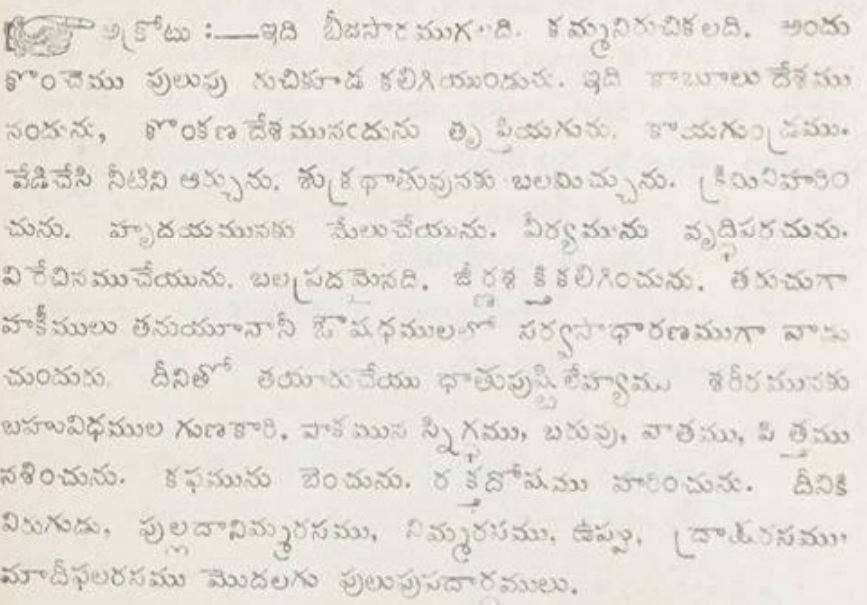 అక్రోటు :—ఇది బీజసారముగలది. కమ్మనిరుచికలది. అందు
కొంచెము పులుపు రుచికూడ కలిగియుండును. ఇది కాబూలు దేశము
నందును, కొంకణ దేశమునందును తృప్తియగును. కాయగుండ్రము.
వేడిచేసి నీటిని ఆర్చును. శుక్రధాతువునకు బలమిచ్చును. క్రిమినిహరిం
చును. హృదయమునకు మేలుచేయును. వీర్యమును వృద్ధిపరచును.
విరేచినముచేయును. బలప్రదమైనది. జీర్ణశక్తికలిగించును. తరుచుగా
హకీములు తమయూనానీ ఔషధములలో సర్వసాధారణముగా వాడు
చుందురు. దీనితో తయారుచేయు ధాతుపుష్టిలేహ్యము శరీరమునకు
బహువిధముల గుణకారి. పాకమున స్నిగ్ధము, బరువు, వాతము, పిత్తము
నశించును. కఫమును బెంచును. రక్తదోషము హరించును. దీనికి
విరుగుడు, పుల్లదానిమ్మరసము, నిమ్మరసము, ఉప్పు, ద్రాక్షరసము,
మాదీఫలరసము మొదలగు పులుపుపదార్థములు.